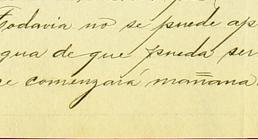 Todavia no se puede ap
gua de que pueda ser
ce comenzará mañana.